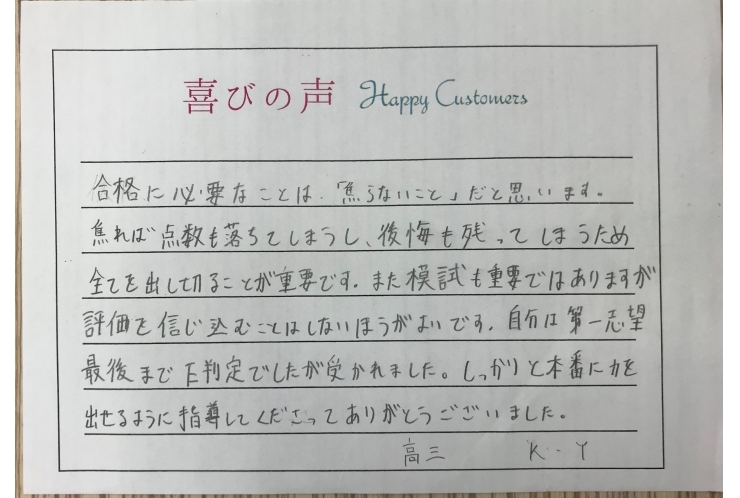 喜びの声 Happy Customers
合格に必要なことは、「焦らないこと」だと思います。
焦れば点数も落ちてしまうし、後悔も残ってしまうため
全てを出し切ることが重要です。また模試も重要ではありますが
評価を信じ込むことはしないほうがよいです。自分は第一志望
最後までE判定でしたが受かれました。しっかりと本番に力を
出せるように指導してくださってありがとうございました。
高三 K.Y